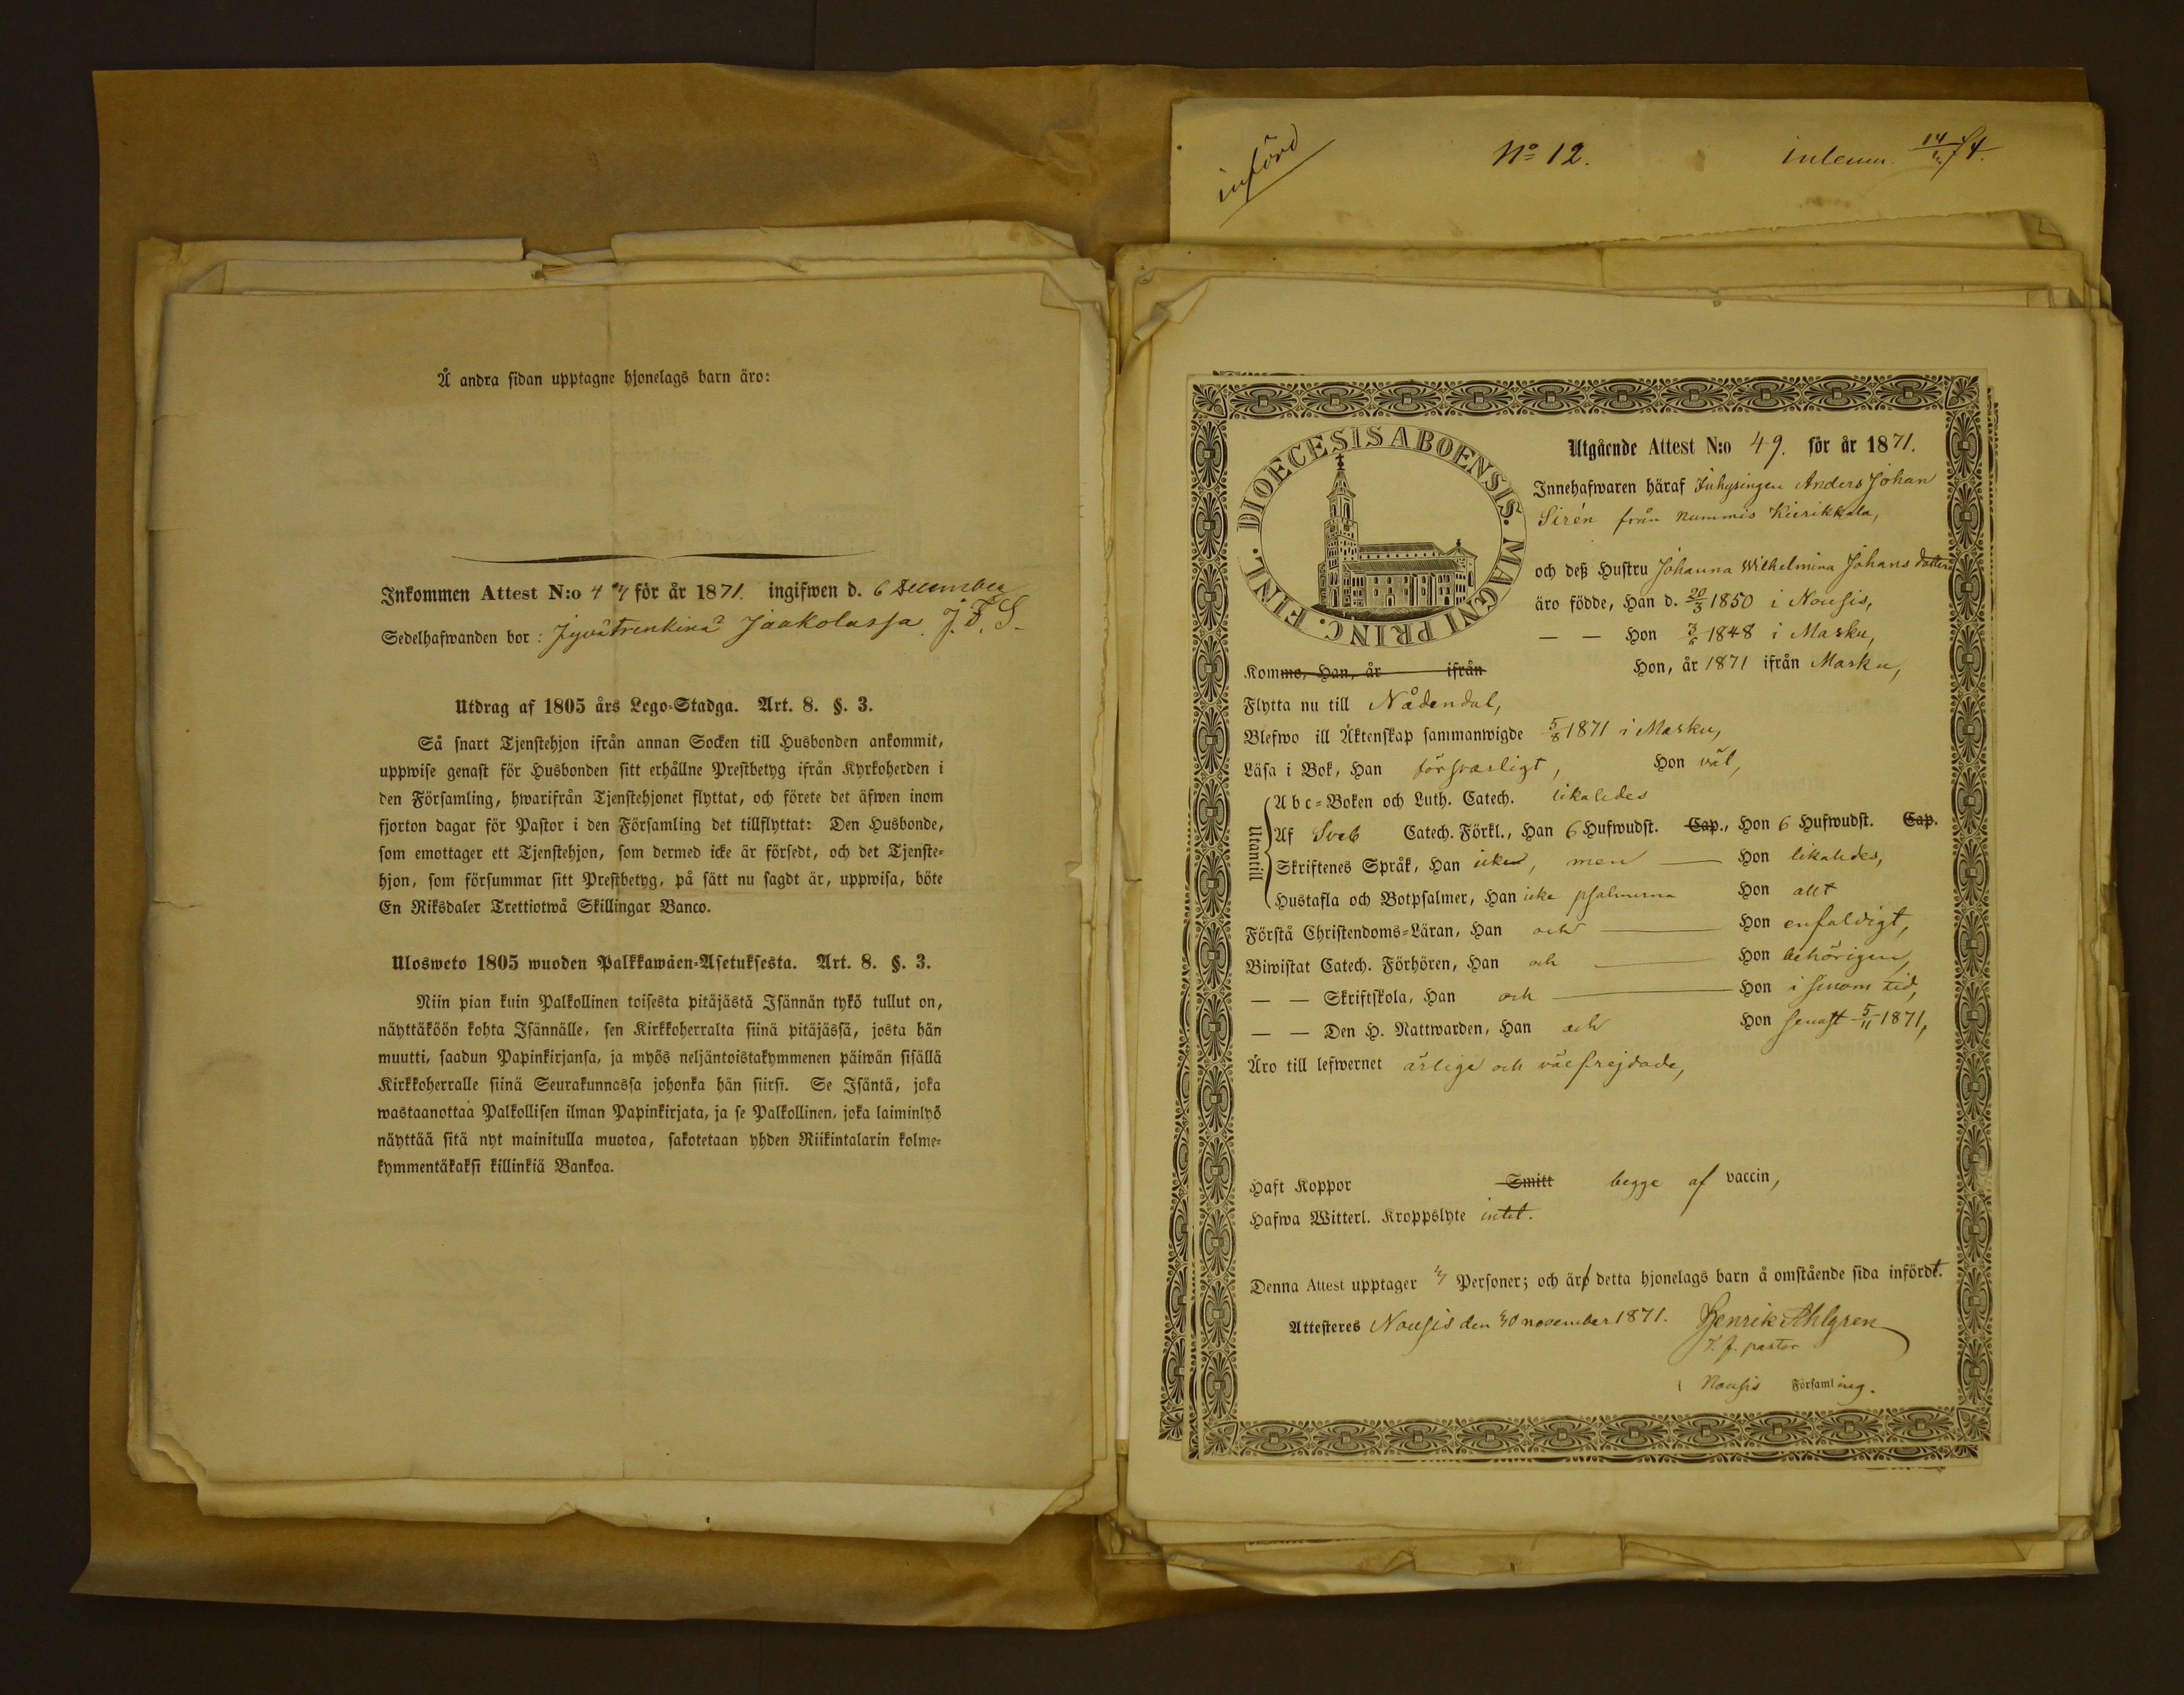 Å andra sidan upptagne hjonelags barn äro:
Inkommen Attest N:o 47 för år 1871. ingifwen d. 6 December
Sedelhafwanden bor: Jaakolassa J. F. S.
Utdrag af 1805 års Lego-Stadga. Art. 8. §. 3.
Så snart Tjenstehjon ifrån annan Socken till Husbonden ankommit,
uppwise genast för Husbonden sitt erhållne Prestbetyg ifrån Kyrkoherden i
den Församling, hwarifrån Tjenstehjonet flyttat, och förete det äfwen inom
fjorton dagar för Pastor i den Församling det tillflyttat: Den Husbonde,
som emottager ett Tjenstehjon, som dermed icke är försedt, och det Tjenste-
hjon, som försummar sitt Prestbetyg, på sätt nu sagdt är, uppwisa, böte
En Riksdaler Trettiotwå Skillingar Banco.
Ulosweto 1805 wuoden Palkkawäen-Asetuksesta. Art. 8. §. 3.
Niin pian kuin Palkollinen toisesta pitäjästä Isännän tykö tullut on,
näyttäköön kohta Isännälle, sen Kirkkoherralta siinä pitäjässä, josta hän
muutti, saadun Papinkirjansa, ja myös neljäntoistakymmenen päiwän sisällä
Kirkkoherralle siinä Seurakunnassa johonka hän siirsi. Se Isäntä, joka
wastaanottaa Palkollisen ilman Papinkirjata, ja se Palkollinen, joka laiminlyö
näyttää sitä nyt mainitulla muotoa, sakotetaan yhden Riikintalarin kolme-
kymmentäkaksi killinkiä Bankoa.
införd
No 12.
inlemn. 14/74.
DIOECESIS ABOENSIS. MAGNI PRINC. FINL.
Utgående Attest N:o 49. för år 1871.
Innehafwaren häraf Inhysingen Anders Johan
Sirén från Nummis Kiirikkala,
och deß Hustru Johanna Wilhelmina Johansdotter
äro födde, Han d. 20/3 1850 i Nousis,
— — Hon 3/6 1848 i Masku,
Komme, Han, år ifrån Hon, år 1871 ifrån Masku,
Flytta nu till Nådendal,
Blefwo ill Äktenskap sammanwigde 5/8 1871 i Masku,
Läsa i Bok, Han försvarligt, Hon väl,
Utantill
Abc-Boken och Luth. Catech. likaledes
Af Sveb Catech. Förkl., Han 6 Hufwudst. Cap., Hon 6 Hufwudst. Cap.
Skriftenes Språk, Han icke, men — Hon likaledes,
Hustafla och Botpsalmer, Han icke psalmerna Hon allt
Förstå Christendoms-Läran, Han och — Hon enfaldigt,
Biwistat Catech. Förhören, Han och — Hon behörigen,
— — Skriftskola, Han och — Hon i sinom tid,
— — Den H. Nattwarden, Han och Hon senast 5/11 1871,
Äro till lefwernet ärlige och välfrejdade,
Haft Koppor Smitt begge af vaccin,
Hafwa Witterl. Kroppslyte intet.
Denna Attest upptager Personer; och äro detta hjonelags barn å omstående sida infördt.
Attesteres Nousis den 30 november 1871. Henrik Ahlgren
T. f. pastor
i Nousis Församling.